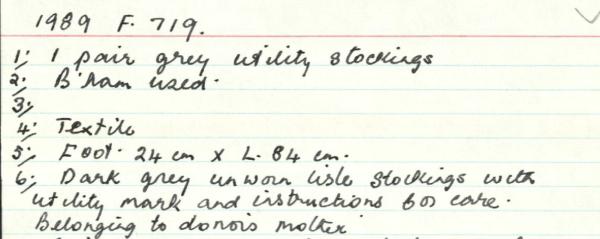 1989 F. 719.
1; 1 pair grey utility stockings
2; B'ham used.
3;
4; Textile
5; Foot. 24 cm x L. 84 cm.
6; Dark grey unworn lisle stockings with
utility mark and instructions for care.
Belonging to donor's mother